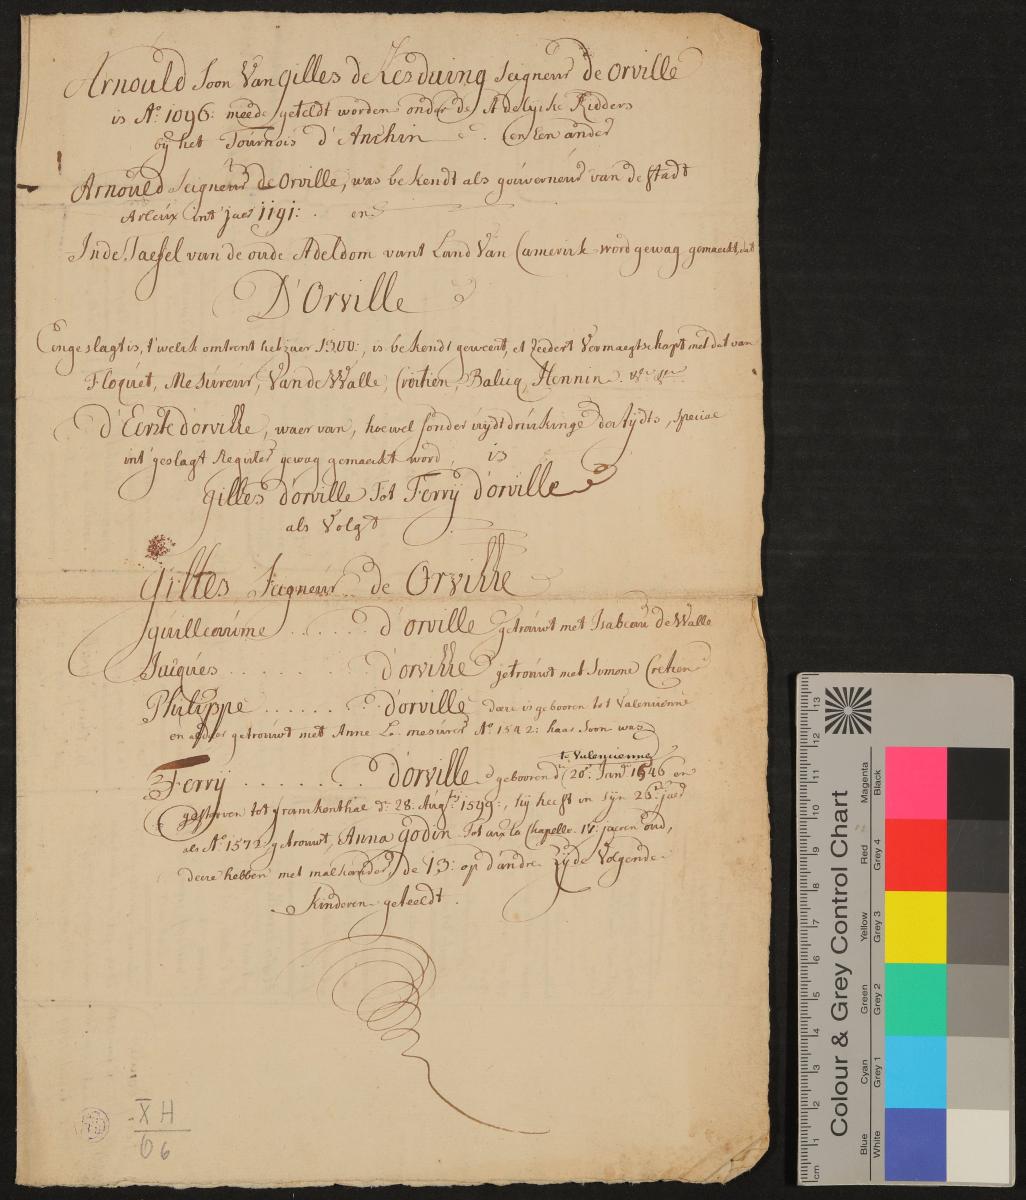 Arnould Soon Van Gilles de Lesduing Seigneur de Orville
is Ao. 1096: meede geteldt worden onder de Adelycke Ridders
by het Tournois d'Anchin en Een ander
Arnould Seigneur de Orville, was bekendt als gouverneur van de stadt
Arleux int jaer 1191: en
In de Taeffel van de oude Adeldom vant Land Van Camerick word gewag gemaeckt, dat
D'Orville
Een geslagt is, t'welck omtrent het jaer 1300:, is bekendt geweest, et zeedert Vermaegtschapt met dat van
Floquet, Mesureur, Van de Walle, Cretien, Balicq, Hennin
d'Eerste d'orville, waer van, hoewel sonder uijtdruckinge des tijdts, speciae
int geslagt Register gewag gemaeckt word, is
gilles d'orville Tot Ferrÿ d'orville
als Volgt
Gilles Seigneur de Orville
guilleaume ...... d'orville getrouwt met Isabeau de Walle
Jacques ........ d'orville getrouwt met Simone Cretien
Philippe ........ d'orville deese is gebooren tot Valencienne
en aldaer getrouwt met Anne Le mesureur Ao 1542: haar Soon was
te Valencienne
Ferrÿ d'orville gebooren d' 20 Jan 1546 en
gestorven tot franckenthal d. 28. Augt. 1599:, hij heeft in sijn 26. jaer
als Ao. 1572 getrouwt, Anna godin Tot aix la Chapelle 17: jaeren oud,
deese hebben met malkander, de 13: op d'andre zijde Volgende
Kinderen geteeldt.
XH
66
cm 1 2 3 4 5 6 7 8 9 10 11 12 13
Colour & Grey Control Chart
Blue Cyan Green Yellow Red Magenta
White Grey 1 Grey 2 Grey 3 Grey 4 Black